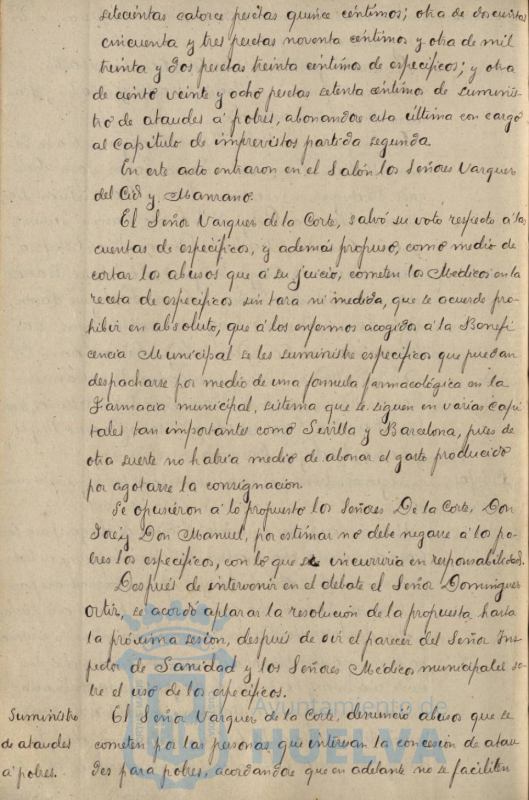 setecientas catorce pesetas quince céntimos; otra de doscientas
cincuenta y tres pesetas noventa centimos y otra de mil
treinta y dos pesetas treinta centimos de especificos; y otra
de ciento veinte y ocho pesetas setenta céntimos de suminis-
tro de ataudes á pobres, abonandose esta última con cargo
al capítulo de imprevistos partida segunda.
En este acto entraron en el Salón los Señores Vazquez
del Cid y Manzano.
El Señor Vazquez de la Corte, salvó su voto respecto á las
cuentas de especificos, y además propuso, como medio de
cortar los abusos que á su juicio, cometen los Medicos en la
receta de especificos sin tasa ni medida, que se acuerde pro-
hibir en absoluto, que á los enfermos acogidos á la Benefi-
cencia Municipal se les suministre especificos que puedan
despacharse por medio de una formula farmacológica en la
Farmacia municipal, sistema que se siguen en varias Capi-
tales tan importantes como Sevilla y Barcelona, pues de
otra suerte no habria medio de abonar el gasto producido
por agotarse la consignacion.
Se opusieron á lo propuesto los Señores De la Corte, Don
José y Don Manuel, por estimar no debe negarse á los po-
bres los especificos, con lo que se incurriria en responsabilidad.
Después de intervenir en el debate el Señor Dominguez
Ortiz, se acordó aplazar la resolución de la propuesta hasta
la próxima sesion, después de oir el parecer del Señor Ins-
pector de Sanidad y los Señores Medicos municipales so-
bre el uso de los especificos.
Suministro
de ataudes
á pobres.
El Señor Vazquez de la Corte, denunció abusos que se
cometen por las personas que interesan la concesion de atau-
des para pobres, acordandose que en adelante no se faciliten
Ayuntamiento de
HUELVA